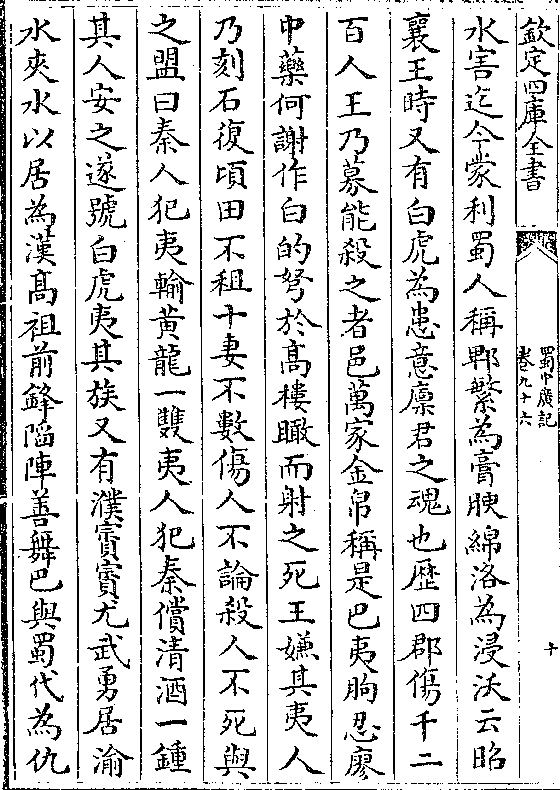 欽定四庫全書
蜀中廣記
卷九十六
十
水害迄今蒙利蜀人稱郫繁為膏腴綿洛為浸沃云昭
襄王時又有白虎為患意廩君之魂也歴四郡傷千二
百人王乃募能殺之者邑萬家金帛稱是巴夷朐忍廖
中藥何謝作白的弩於髙樓瞰而射之死王嫌其夷人
乃刻石復頃田不租十妻不數傷人不論殺人不死與
之盟曰秦人犯夷輸黃龍一雙夷人犯秦償清酒一鍾
其人安之遂號白虎夷其族又有濮賨賨尤武勇居渝
水夾水以居為漢髙祖前鋒陷陣善舞巴與蜀代為仇